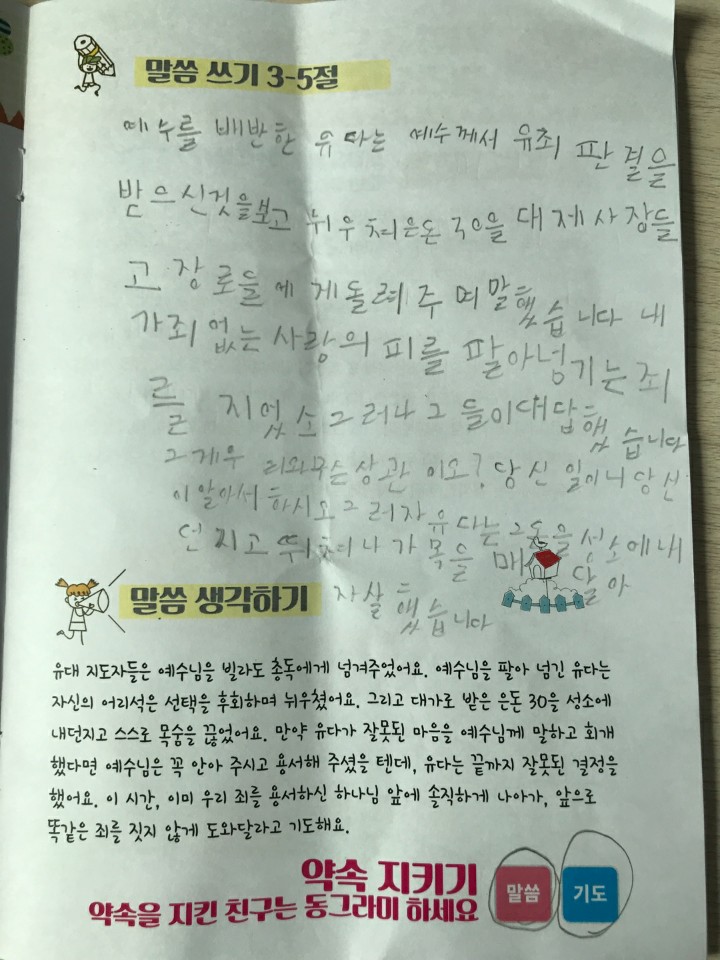 말씀 쓰기 3-5절
예수를 배반한 유다는 예수께서 유죄 판결을
받으신것을보고 뉘우쳐은돈 30을 대제사장들
고 장로들에게돌려주며말했습니다 내
가죄 없는 사람의 피를 팔아넘기는죄
를 지었소그러나그들이대답했습니다
그게우리와무슨상관이오? 당신 일이니당신
이알아서하시오그러자유다는그돈을성소에내
던지고뛰쳐나가목을 매 달아
자살했습니다
말씀 생각하기
유대 지도자들은 예수님을 빌라도 총독에게 넘겨주었어요. 예수님을 팔아 넘긴 유다는
자신의 어리석은 선택을 후회하며 뉘우쳤어요. 그리고 대가로 받은 은돈 30을 성소에
내던지고 스스로 목숨을 끊었어요. 만약 유다가 잘못된 마음을 예수님께 말하고 회개
했다면 예수님은 꼭 안아 주시고 용서해 주셨을 텐데, 유다는 끝까지 잘못된 결정을
했어요. 이 시간, 이미 우리 죄를 용서하신 하나님 앞에 솔직하게 나아가, 앞으로
똑같은 죄를 짓지 않게 도와달라고 기도해요.
약속 지키기
약속을 지킨 친구는 동그라미 하세요
말씀 기도